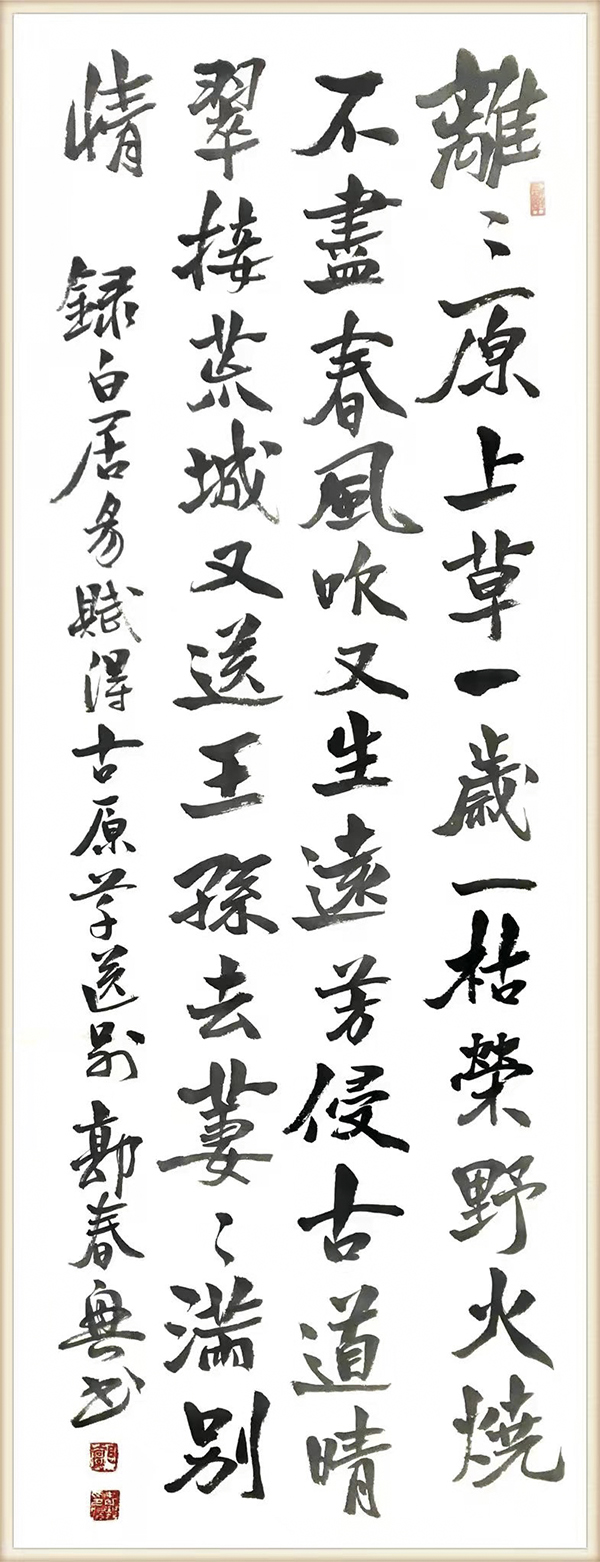 離〻原上草一歲一枯榮野火燒
不盡春風吹又生遠芳侵古道晴
翠接荒城又送王孫去萋〻滿別
情 録白居易賦得古原草送別 春興书